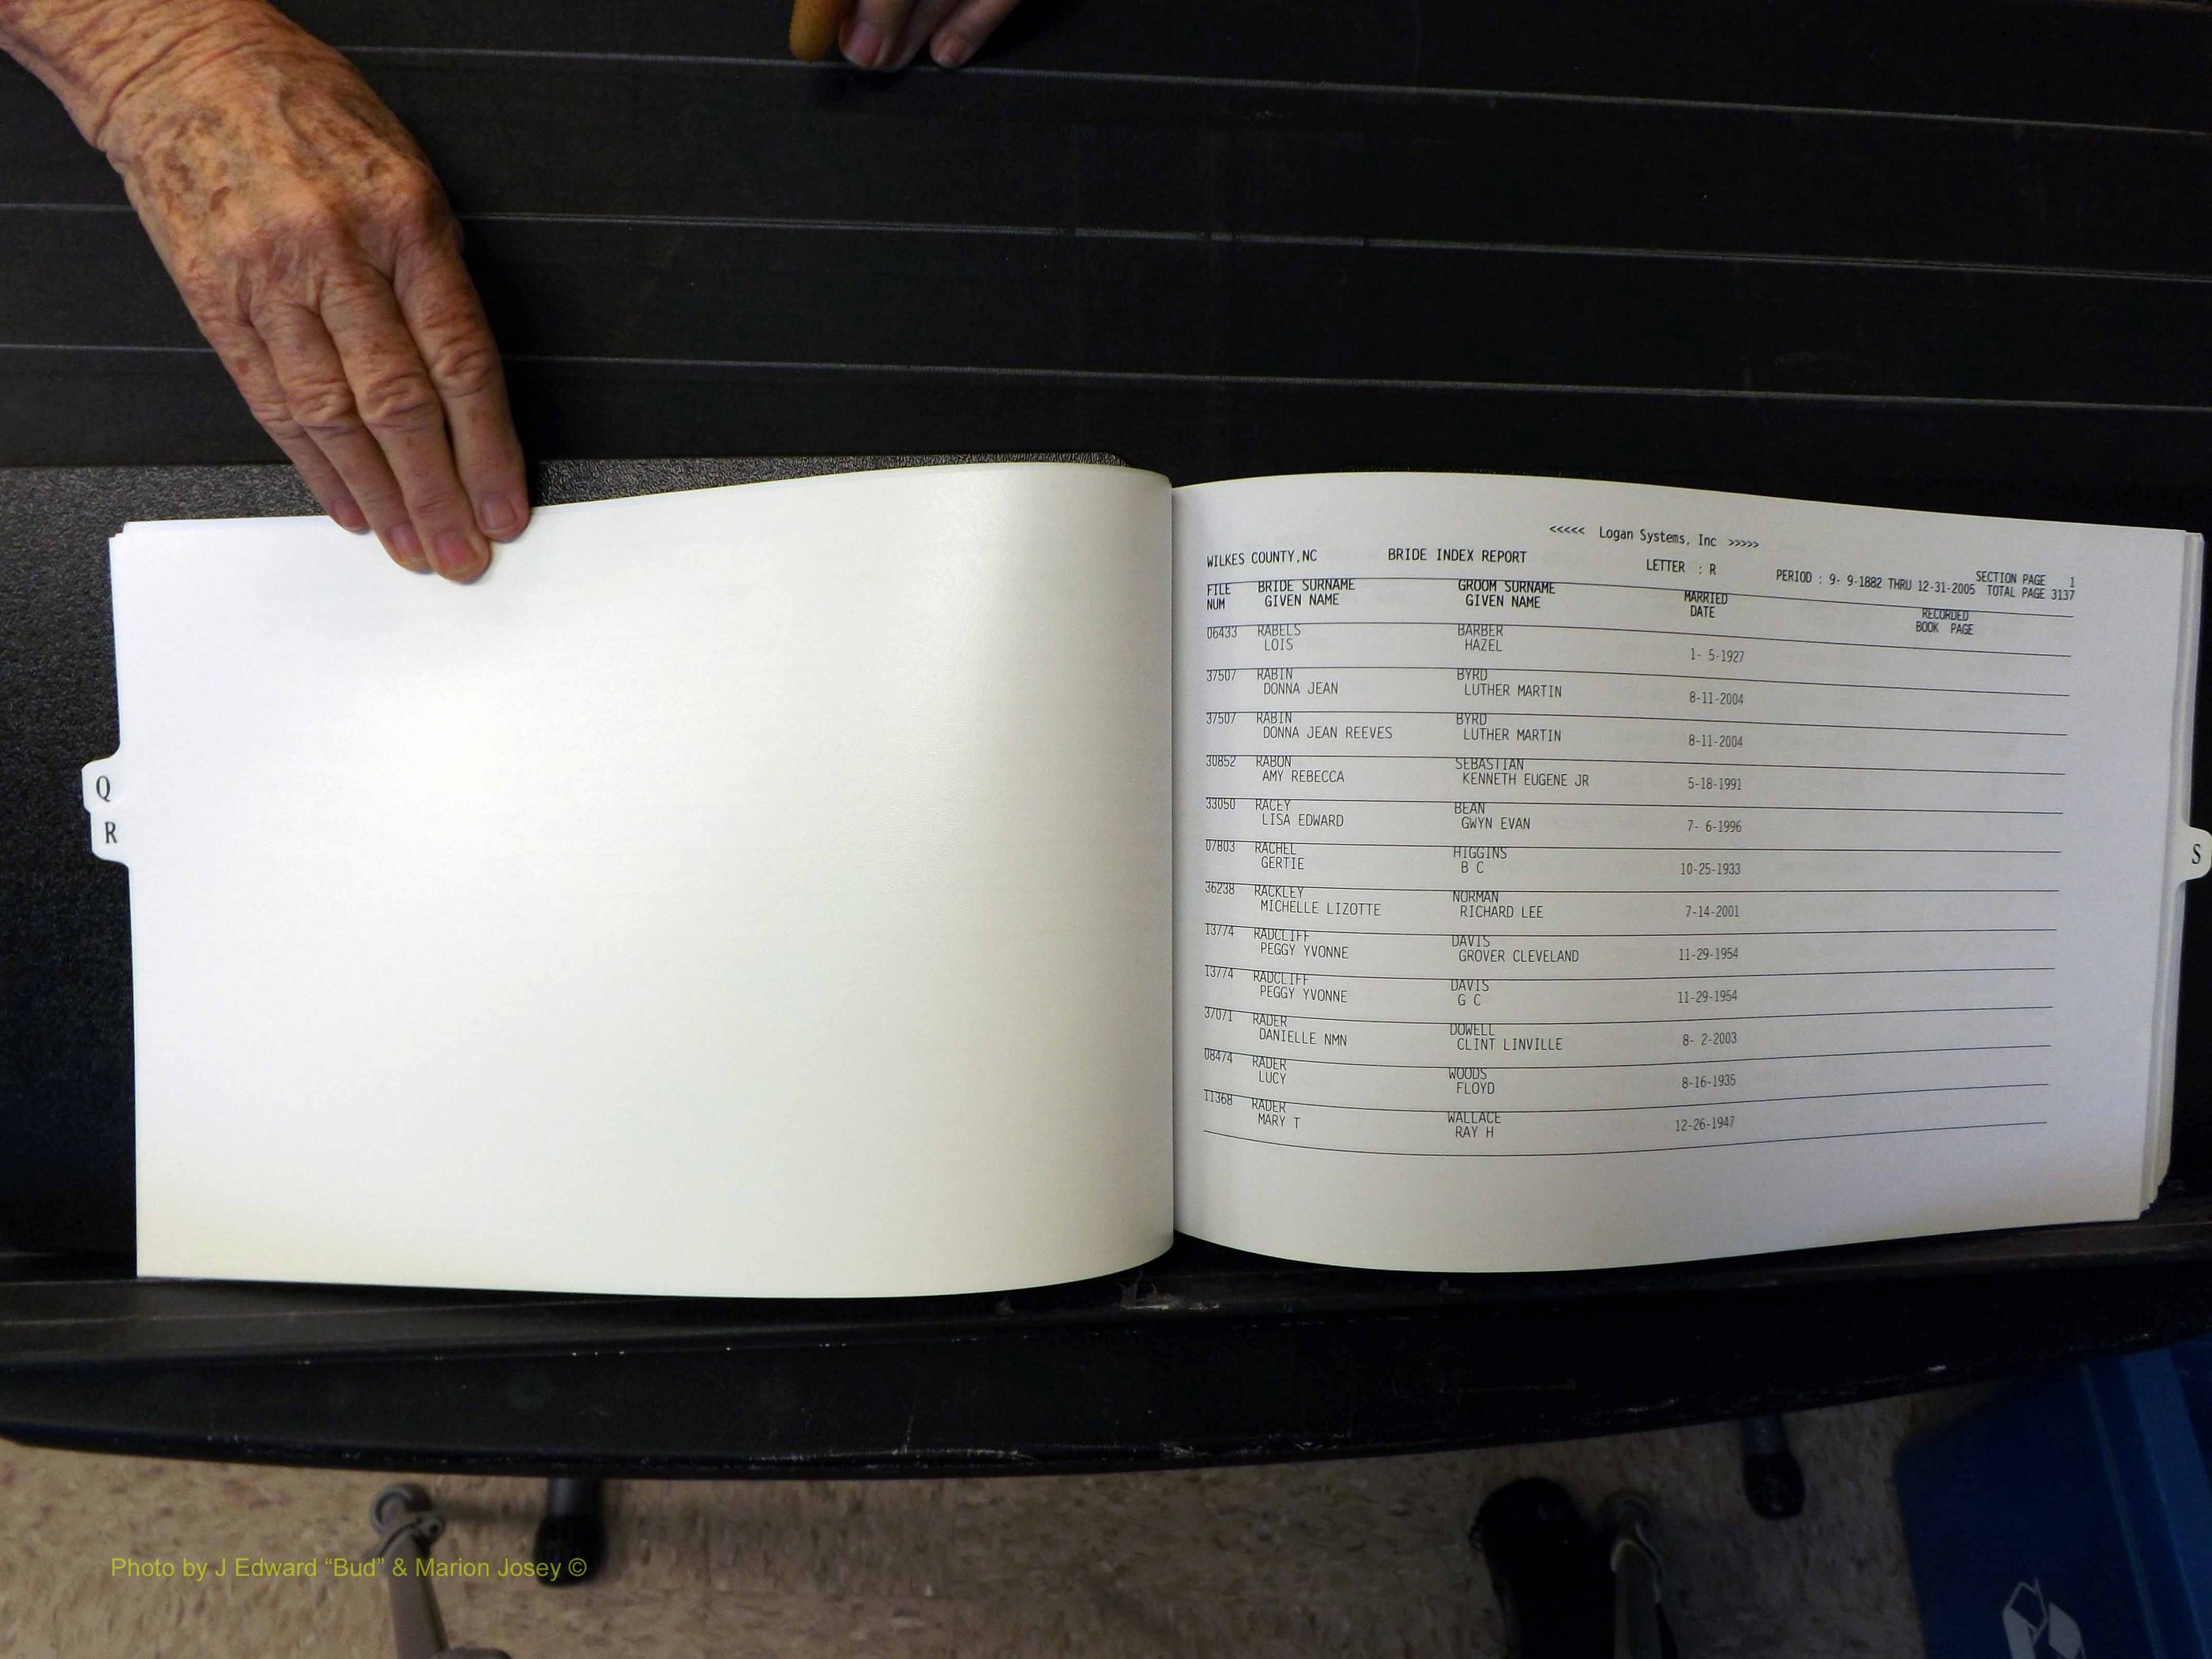 <<<<< Logan Systems, Inc >>>>>
WILKES COUNTY,NC BRIDE INDEX REPORT LETTER : R SECTION PAGE 1
PERIOD : 9- 9-1882 THRU 12-31-2005 TOTAL PAGE 3137
FILE BRIDE SURNAME GROOM SURNAME MARRIED RECORDED
NUM GIVEN NAME GIVEN NAME DATE BOOK PAGE
06433 RABELS BARBER
LOIS HAZEL 1- 5-1927
37507 RABIN BYRD
DONNA JEAN LUTHER MARTIN 8-11-2004
37507 RABIN BYRD
DONNA JEAN REEVES LUTHER MARTIN 8-11-2004
30852 RABON SEBASTIAN
AMY REBECCA KENNETH EUGENE JR 5-18-1991
33050 RACEY BEAN
LISA EDWARD GWYN EVAN 7- 6-1996
07803 RACHEL HIGGINS
GERTIE B C 10-25-1933
36238 RACKLEY NORMAN
MICHELLE LIZOTTE RICHARD LEE 7-14-2001
13774 RADCLIFF DAVIS
PEGGY YVONNE GROVER CLEVELAND 11-29-1954
13774 RADCLIFF DAVIS
PEGGY YVONNE G C 11-29-1954
37071 RADER DOWELL
DANIELLE NMN CLINT LINVILLE 8- 2-2003
08474 RADER WOODS
LUCY FLOYD 8-16-1935
11368 RADER WALLACE
MARY T RAY H 12-26-1947
Q
R
S
Photo by J Edward “Bud” & Marion Josey ©